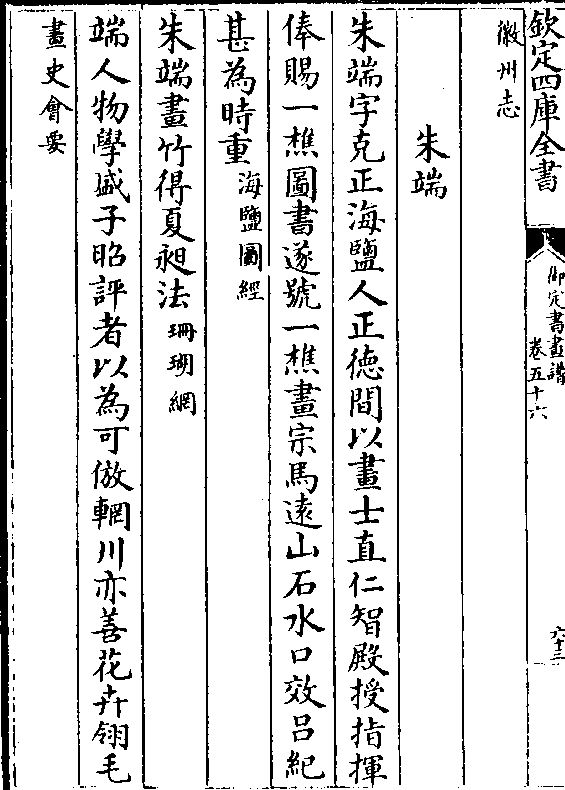 欽定四庫全書
御定書畫譜
卷五十六
六十三
徽州志
朱端
朱端字克正海鹽人正徳間以畫士直仁智殿授指揮
俸賜一樵圖書遂號一樵畫宗馬遠山石水口效吕紀
甚為時重海鹽圖經
朱端畫竹得夏昶法珊瑚網
端人物學盛子昭評者以為可倣輞川亦善花卉翎毛
畫史會要